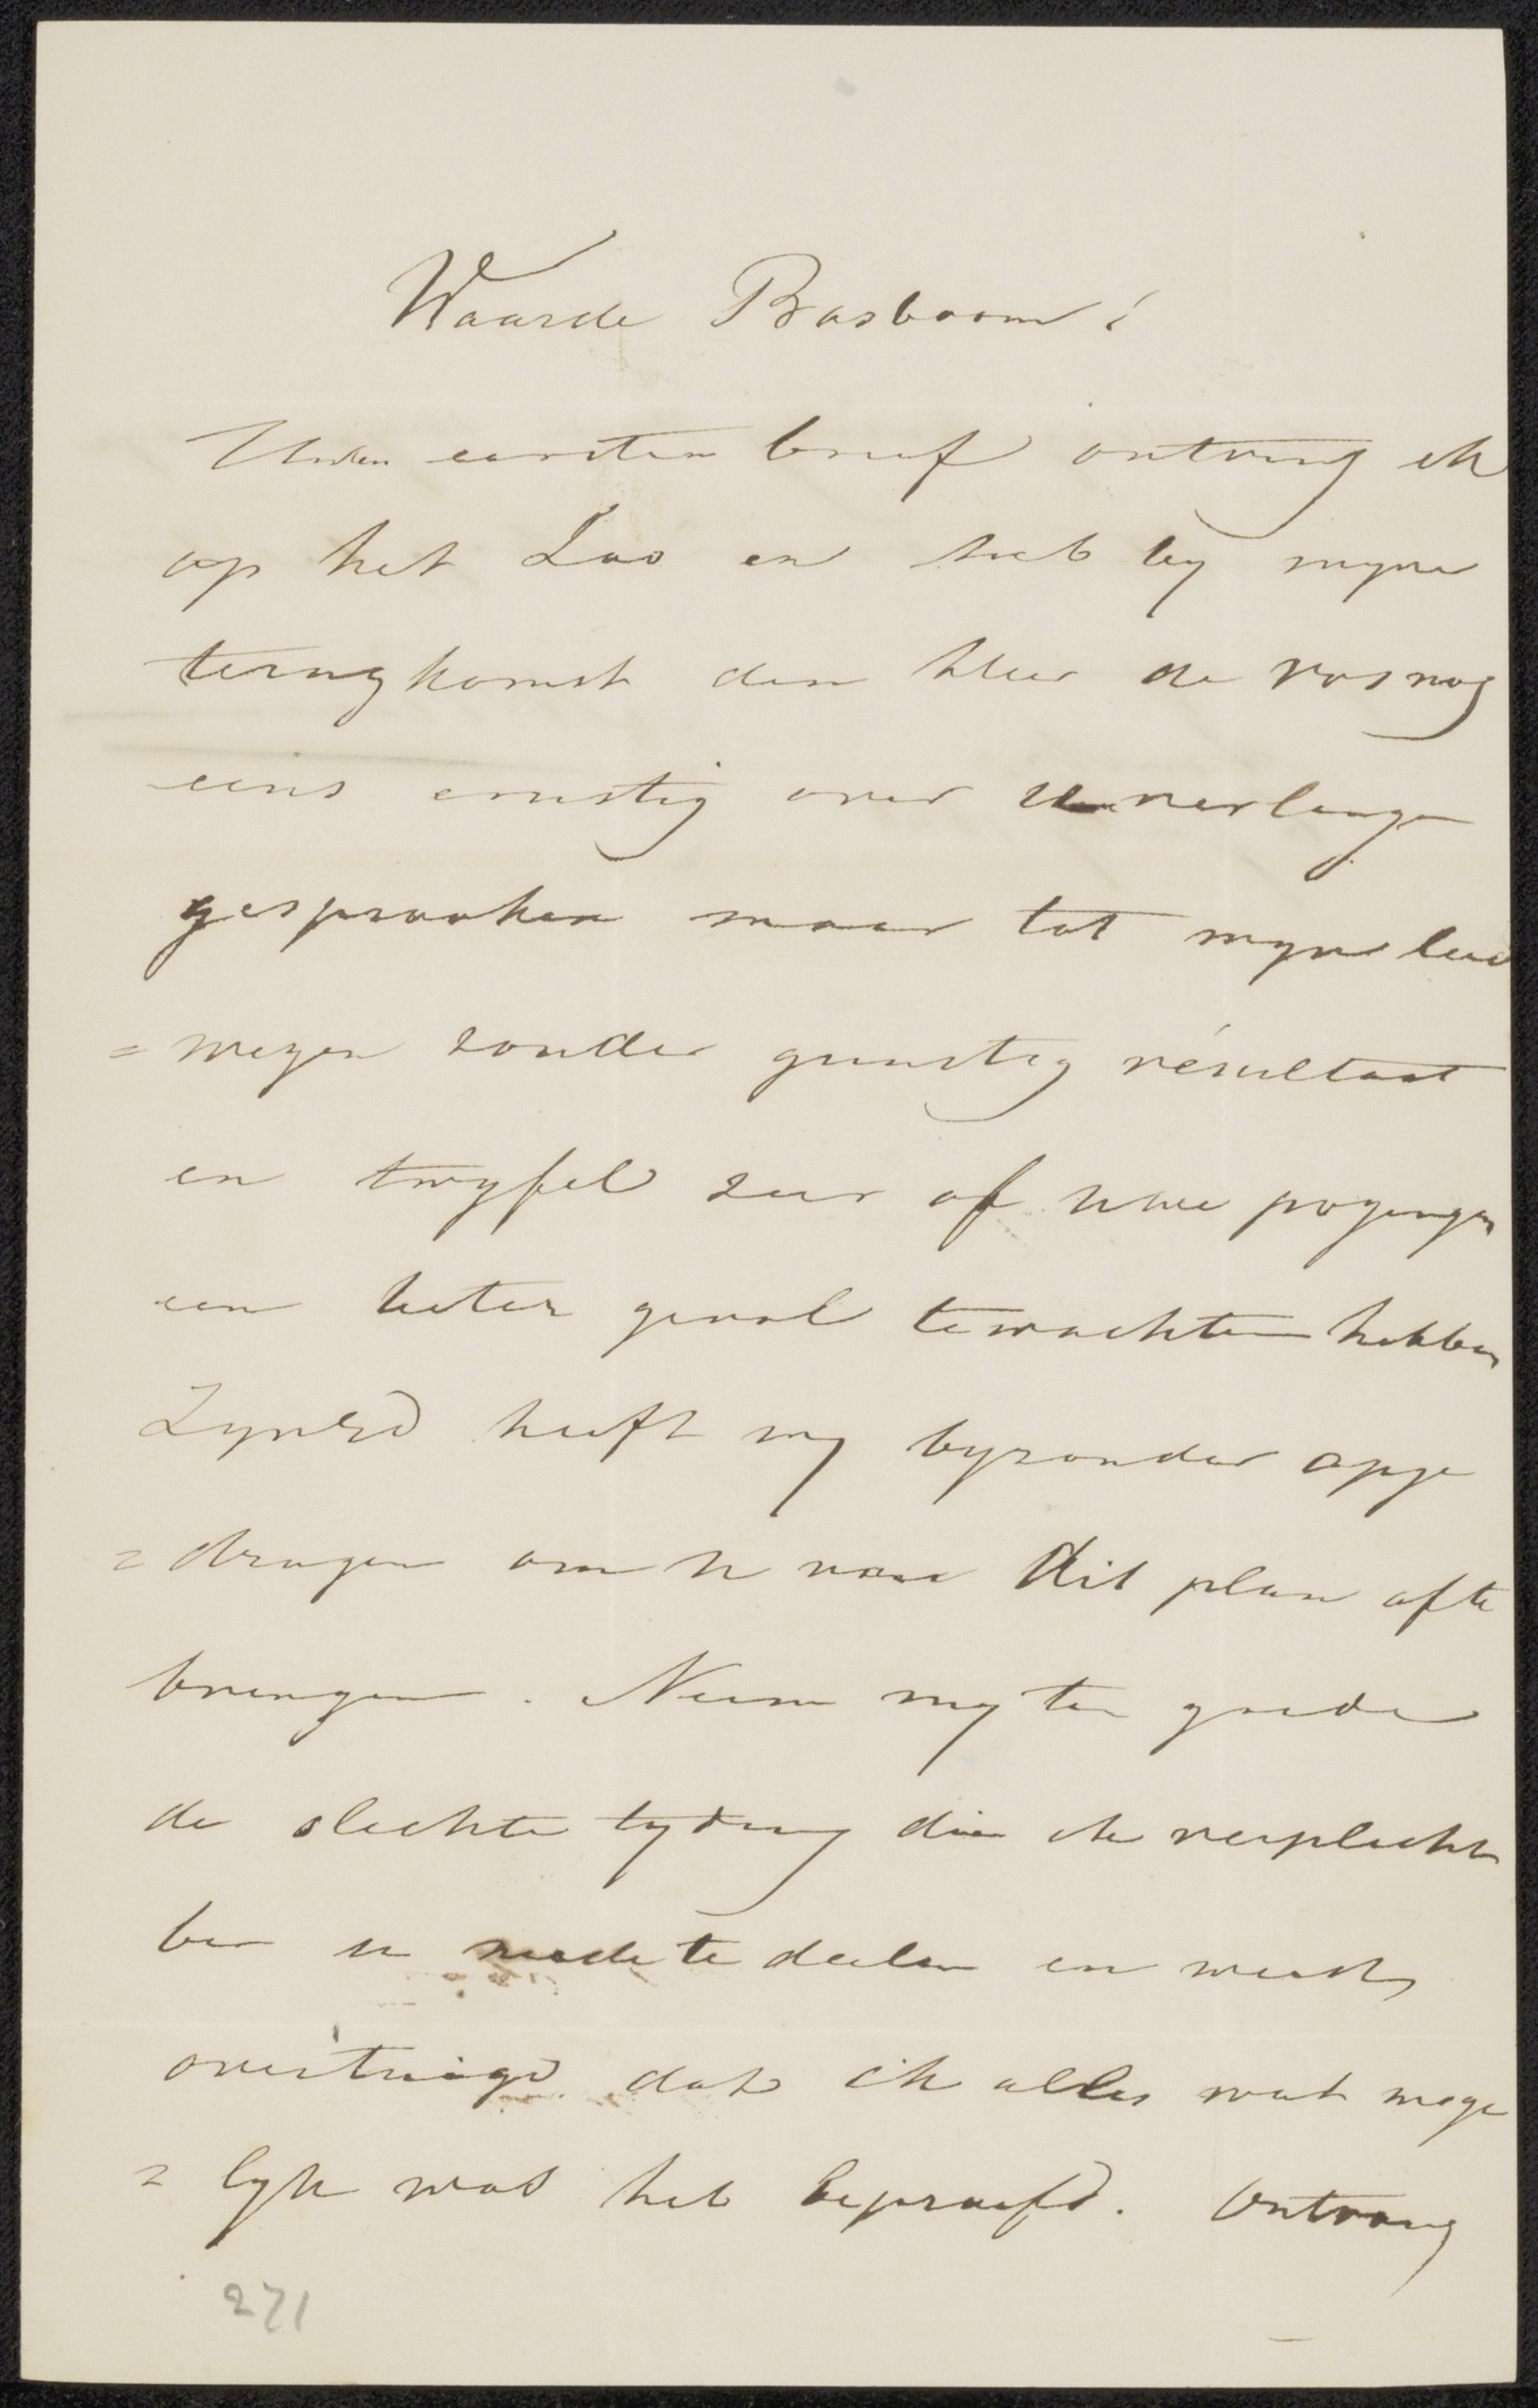 Waarde Bosboom!
Uwen eersten brief ontving ik
op het Loo en heb by myne
terugkomst den Heer de Vos nog
eens ernstig over uw verlangen
gesprooken maar tot myn leed
= wezen zonder gunstig résultaat
en twyfel zeer of uwe pogingen
een beter geval te wachten hebben
ZynEd heeft my byzonder opge
= dragen om u van dit plan af te
brengen. Neem my ten goede
de slechte tyding die ik verplicht
ben u mede te deelen en weest
overtuigd dat ik alles wat moge
= lyk was heb beproefd. Ontvang
271